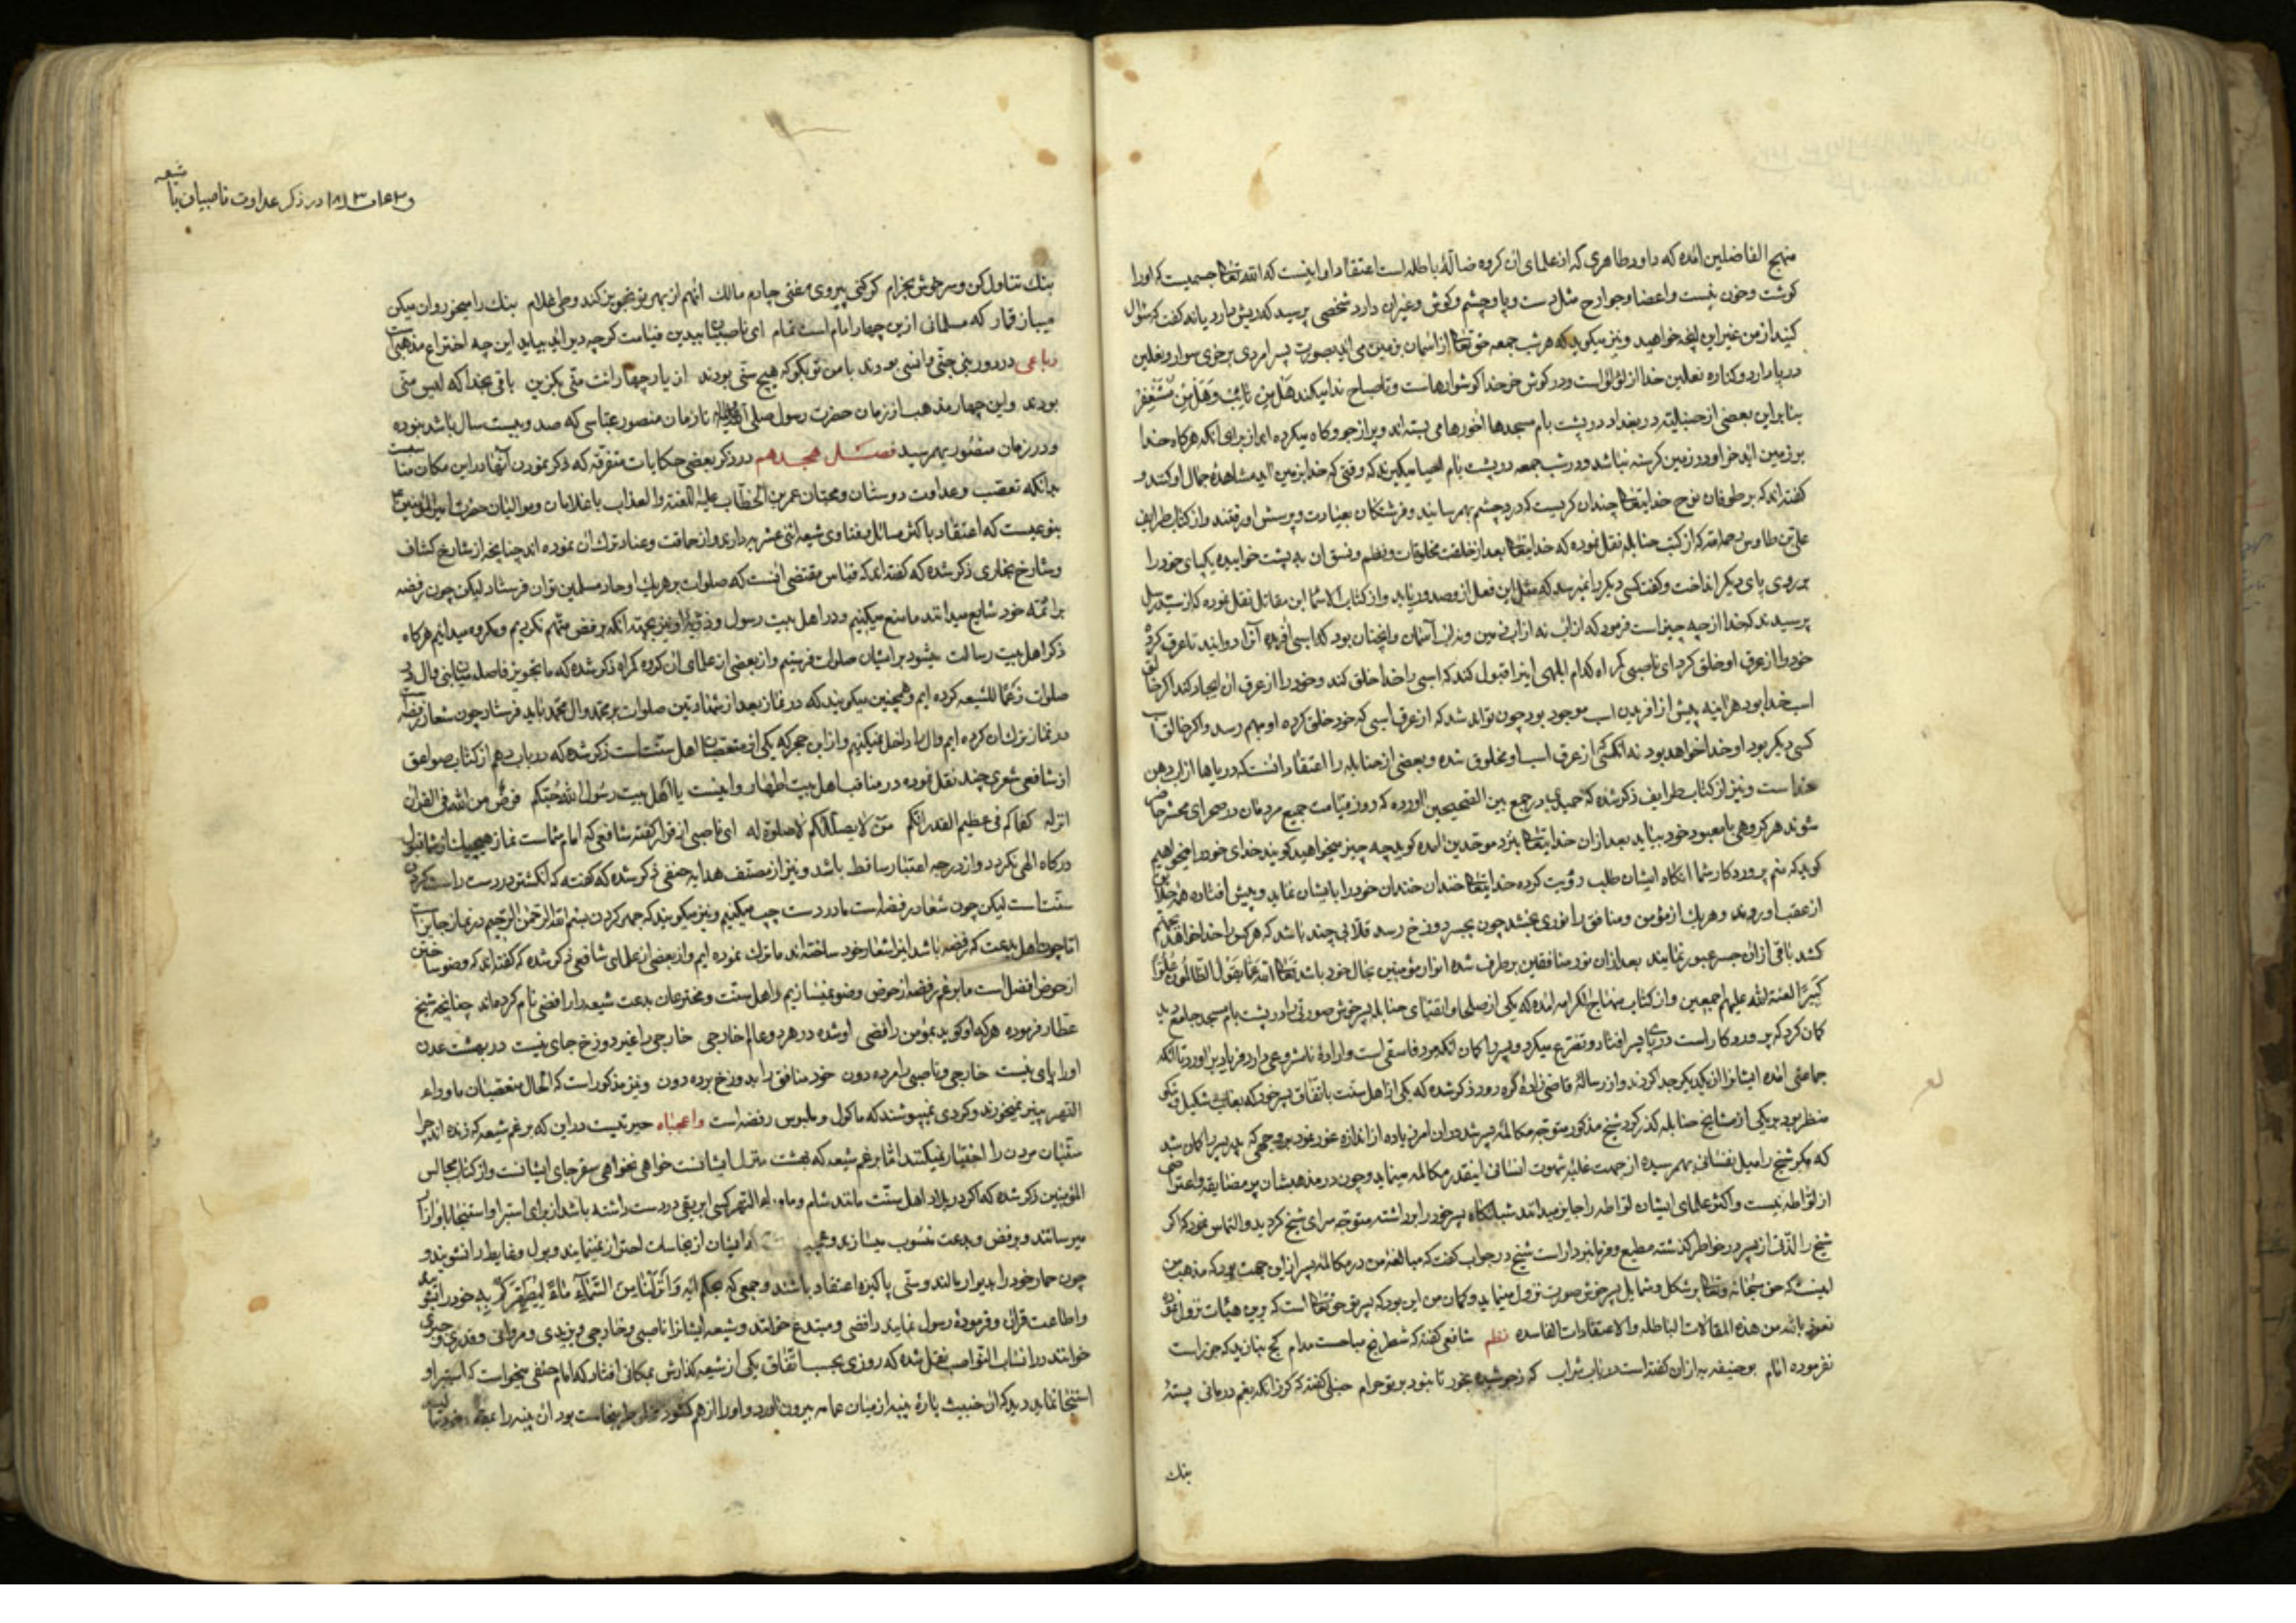 منهج الفاضلین امده که داود ظاهری که از علمای ان کروه ضالهٔ باطله است اعتقاد او اینست که الله تعالی جسمیست که اورا
کوشت و خون نیست و اعضا و جوارح مثل دست و پا و چشم و کوش و غیر ان دارد شخصی پرسید که ریش دارد یا نه کفت که سئوال
کنید از من غیر این انچه خواهید و نیز میکوید که هر شب جمعه حق تعالی از اسمان بزمین می اید بصورت پسر امردی بر خری سوار و نعلین
در پا دارد و کناره نعلین خدا از لؤلؤ است و در کوش خر خدا کوشوارهاست و تا صباح ندا میکند هَل مِن تائِبٍ وَهَل مِن مُسْتَغْفِرٍ
بنا بر این بعضی از حنبلیّه در بغداد در پشت بام مسجدها اخورها می بسته اند و پر از جو و کاه میکرده اند از برای انکه هرکاه خدا
بر زمین اید خر او در زمین کرسنه نباشد و در شب جمعه در پشت بام احیا میکیرند که وقتی که خدا بزمین اید مشاهدهٔ جمال او کنند و
کفته اند که بر طوفان نوح خدایتعالی چندان کریست که درد چشم بهم رسانید و فرشتکان بعیادت و پرسش او رفتند و از کتاب طرایف
علی بن طاوس رحمه الله که از کتب حنابله نقل نموده که خدایتعالی بعد از خلقت مخلوقات و نظم و نسق ان به پشت خوابیده یکپای خود را
بر روی پای دیکر انداخت و کفت کسی دیکر را نمیرسد که مثل این فعل از و صدور یابد و از کتاب مقاتل نقل نموده که از
پرسیدند که خدا از چه چیز است فرمود که از اب نه از اب زمین و نه از اب آسمان و اینچنان بود که اسبی افریده آنرا دوانید تا عرق کرد
خود را از عرق او خلق کرد ای ناصبی کمراه کدام ابلهی اینرا قبول کند که اسبی را خدا خلق کند و خود را از عرق ان ایجاد کند اکر خالق
اسب خدا بود هر اینه پیش از افریدن اسب موجود بود چون تواند شد که از عرق اسبی که خود خلق کرده او بهم رسد و اکر خالق اسب
کسی دیکر بود او خدا خواهد بود نه انکسی که از عرق اسب او مخلوق شده و بعضی از حنابله را اعتقاد انست که دریاها از اب دهن
خداست و نیز از کتاب طرایف ذکر شده که حمیدی در جمع بین الصّحیحین اورده که روز قیامت جمیع مردمان در صحرای محشر حاضر
شوند هر کروهی با معبود خود بیاید بعد از ان خدایتعالی بنزد موحدین امده کوید چه چیز میخواهید کویند خدای خود را میخواهیم
کوید که منم پروردکار شما انکاه ایشان طلب رؤیت کرده خدایتعالی خندان خندان خود را بایشان نماید و پیش افتاده
از عقب او روند و هر یک از مؤمن و منافق را نوری بخشد چون بجسر دوزخ رسد قلابی چند باشد که هر کس را خدا خواهد بجهنم
کشد باقی از ان جسر عبور نمایند بعد از ان نور منافقین بر طرف شده انوار مؤمنین بحال خود باشد تَعَالَی اللهُ عَمّا یَقُولُ الظّالِمُونَ عُلُوّاً
کَبیراً لعنة الله علیهم اجمعین و از کتاب منهاج الکرامه امده که یکی از صلحا و اتقیای حنابله پسر خوش صورتی را در پشت بام مسجد جامع دید
کمان کرد که پروردکار است در پای پسر افتاد و تضرع میکرد و پسر را کمان انکه مرد فاسقی است و ارادهٔ نامشروعی دارد فریاد بر اورد تا انکه
جماعتی امده ایشانرا از یکدیکر جدا کردند و از رسالهٔ قاضی زادهٔ کره رود ذکر شده که یکی از اهل سنّت باتفاق پسر خود که بغایت شکیل و نیکو
منظر بود بر یکی از مشایخ حنابله کذر کرد شیخ مذکور متوجه مکالمهٔ پسر شد و در ان امر زیاده از اندازه غور نمود بر وجهی که پدر پسر را کمان شد
که مکر شیخ را میل نفسانی بهم رسیده از جهت غلبهٔ شهوت انسانی اینقدر مکالمه مینماید و چون در مذهب ایشان پر مضایقه و اعتراضی
از لواطه نیست و اکثر علمای ایشان لواطه را جایز میدانند شبانکاه پسر خود را برداشته متوجّه سرای شیخ کردید و التماس نمود که اکر
شیخ را لذّتی از پسر در خواطر کذشته مطیع و فرمانبردار است شیخ در جواب کفت که مبالغهٔ من در مکالمهٔ پسر از این جهت بود که مذهب من
اینست که حق سُبحانه و تعالی بر شکل و شمایل پسر خوش صورت نزول مینماید و کمان من این بود که پسر تو حق تعالی است که برین هیئات نزول نموده
نعوذ بالله من هذه المقالات الباطله والاعتقادات الفاسده نظم شافعی کفته که شطرنج مباحست مدام کج مبازید که جز راست
نفرموده امام بوحنیفه به از ان کفته است در باب شراب که زجو شیده بخور تا نبود بر تو حرام حنبلی کفته که کر زانکه بغم درمانی پستهٔ
بنک
و در ذکر عداوت ناصبیان با شیعه
بنک تناول کن و سر خوش بخرام کر کنی پیروی مفتی چارم مالک انهم از بهر تو تجویز کند وطی غلام بنک را میخور روان میکن
میباز قمار که مسلمانی ازین چهار امام است تمام ای ناصبیان بیدین قیامت کرچه دیر اید بیاید این چه اختراع مذهب است
رباعی در روز نبی جنّی و انسی بودند با من تو بکو که هیچ سنّی بودند از یار چهار انت منّی بکزین باقی بخدا که لست منّی
بودند و این چهار مذهب از زمان حضرت رسول صلی الله علیه تا زمان منصور عباسی که صد و بیست سال باشد نبوده
و در زمان منصور بهم رسید فصل هجدهم در ذکر بعضی حکایات متفرقه که ذکر نمودن آنها در این مکان مناسبست
بدانکه تعصّب و عداوت دوستان و محبّان عمر بن الخطّاب علیه اللعنة والعذاب با غلامان و موالیان حضرت امیر المؤمنین
بنوعیست که اعتقاد باکثر مسائل و فتاوی شیعه اثنی عشریه دارند و از حماقت و عناد ترک ان نموده اند چنانچه از شارح کشاف
و شارح بخاری ذکر شده که کفته اند که قیاس مقتضی انست که صلوات بر هر یک از احاد مسلمین توان فرستاد لیکن چون رفضه
بر ائمّه خود شایع میدانند ما منع میکنیم و در اهل بیت رسول و ذرّیه او نیز بجهة انکه برفض متّهم نکردیم مکروه میدانیم هر کاه
ذکر اهل بیت رسالت بشود بر ایشان صلوات فرستیم و از بعضی از علمای ان کروه کمراه ذکر شده که ما تجویز فاصله میان نبی و ال در
صلوات رَغماً للشیعه کرده ایم و همچنین میکویند که در نماز بعد از شهادتین صلوات بر محمد و ال محمد باید فرستاد چون شعار رفضه است
در نماز ترک ان کرده ایم و ال را داخل نمیکنیم و از ابن حجر که یکی از متعصبان اهل سنّت است ذکر شده که در باب دهم از کتاب صواعق
از شافعی شعری چند نقل نموده در مناقب اهل بیت اطهار و اینست یا اهل بیت رسُول الله حُبّکم فرضٌ من الله فی القران
انزله کفاکم فی عظیم القدر انّکم مَن لا یصلّ علیکم لا صلوة له ای ناصبی از قرار کفته شافعی که امام شماست نماز هیچیک از شما قبول
درکاه الهی نکردد و از درجه اعتبار ساقط باشد و نیز از مصنّف هدایه حنفی ذکر شده که کفته که انکشتر در دست راست کردن
سنّت است لیکن چون شعار رفضه است ما در دست چپ میکنیم و نیز میکویند که جهر کردن بسم الله الرحمن الرحیم در نماز جایز است
امّا چون اهل بدعت که رفضه باشد اینرا شعار خود ساخته اند ما ترک نموده ایم و از بعضی از علمای شافعی ذکر شده که کفته اند که وضو ساختن
از حوض افضل است ما برغم رفضه از حوض وضو نمیسازیم و اهل سنّت و مخترعان بدعت شیعه را رافضی نام کرده اند چنانچه شیخ
عطّار فرموده هرکه او کوید بمؤمن رافضی او شده در هر دو عالم خارجی خارجی را غیر دوزخ جای نیست در بهشت عدن
اورا پای نیست خارجی و ناصبی را مرده دون خود منافق را بدوزخ برده دون و نیز مذکور است که الحال متعصبان ماوراء
النهر پنیر نمیخورند و کردی نمیپوشند که ماکول و ملبوس رفضه است واعجباه حیرتیست در این که برغم شیعه که زنده اند چرا
سنّیان مردن را اختیار نمیکنند امّا برغم شیعه که بهشت منزل ایشانست خواهی نخواهی سقر جای ایشانست و از کتاب مجالس
المؤمنین ذکر شده که اکر در بلاد اهل سنّت مانند شام و ماوراء النهر کسی ابریقی در دست داشته باشد از برای استبرا و استنجا باو ازار
میرسانند و برفض و بدعت منسُوب میسازند و ایشان از نجاسات احتراز نمینمایند و بول و غایط را نشویند و
چون حمار خود را بدیوار بمالند و سنّی پاکیزه اعتقاد باشند و جمعی که بحکم ایهٔ وَاَنْزَلْنَا مِنَ السَّمَاءِ مَاءً لِیُطَهِّرَکُمْ بِهِ خود را بشویند
و اطاعت قرانی و فرمودهٔ رسول نمایند رافضی و مبتدع خوانند و شیعه ایشانرا ناصبی و خارجی و یزیدی و مروانی و قدری و جبری
خوانند در انساب النّواصب نقل شده که روزی بحسب اتّفاق یکی از شیعه کذارش بمکانی افتاد که امام حنفی میخواست که استبرا و
استنجا نماید دید که ان خبیث پارهٔ پنبه از میان عمامه بیرون اورد و اورا از هم کشود